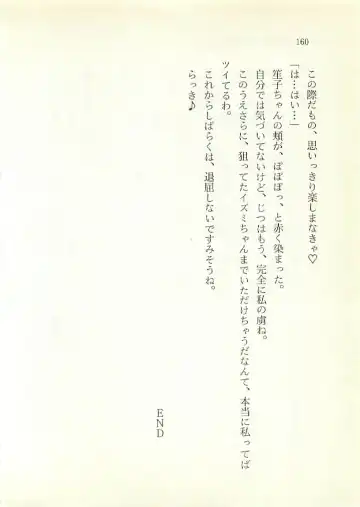 160
この際だもの、思いっきり楽しまなきゃ♡
「は…はい…」
笙子ちゃんの頬が、ぽぽぽっ、と赤く染まった。
自分では気づいてないけど、じつはもう、完全に私の虜ね。
このうえさらに、狙ってたイズミちゃんまでいただけちゃうだなんて、本当に私ってば
ツイてるわ。
これからしばらくは、退屈しないですみそうね。
らっき♪
END